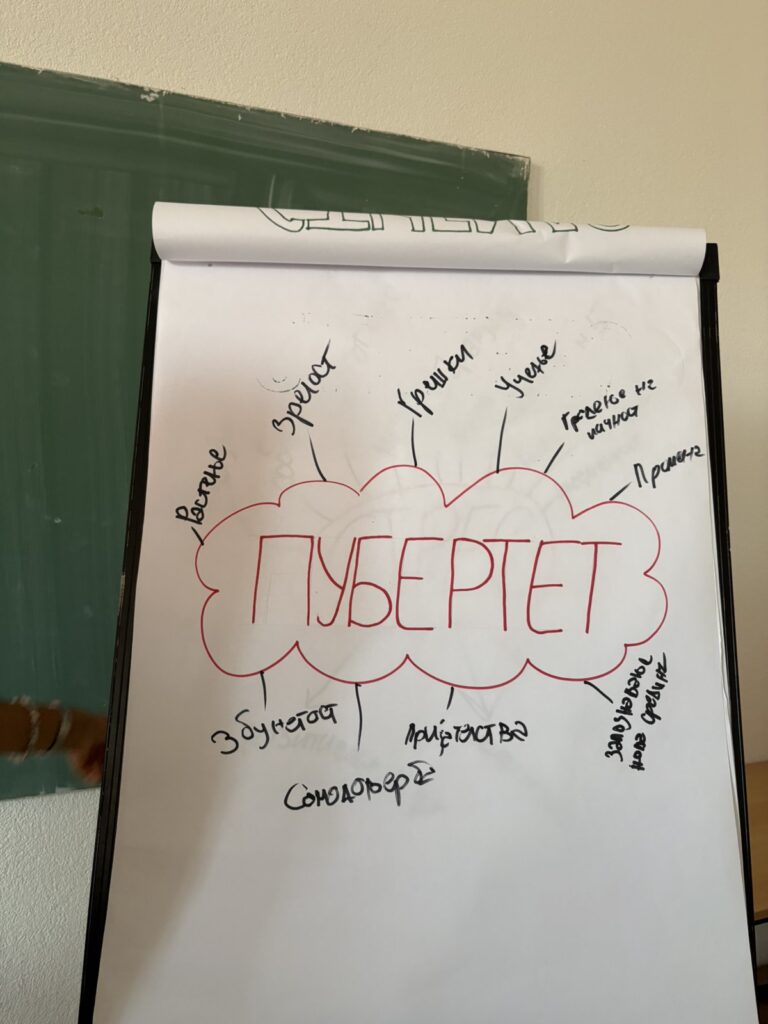 Зрелост
Грешки
Учење
Градење на
личност
Промена
Растење
ПУБЕРТЕТ
Збунетост
Самодоверба
Пријателства
Запознавање
нова средина